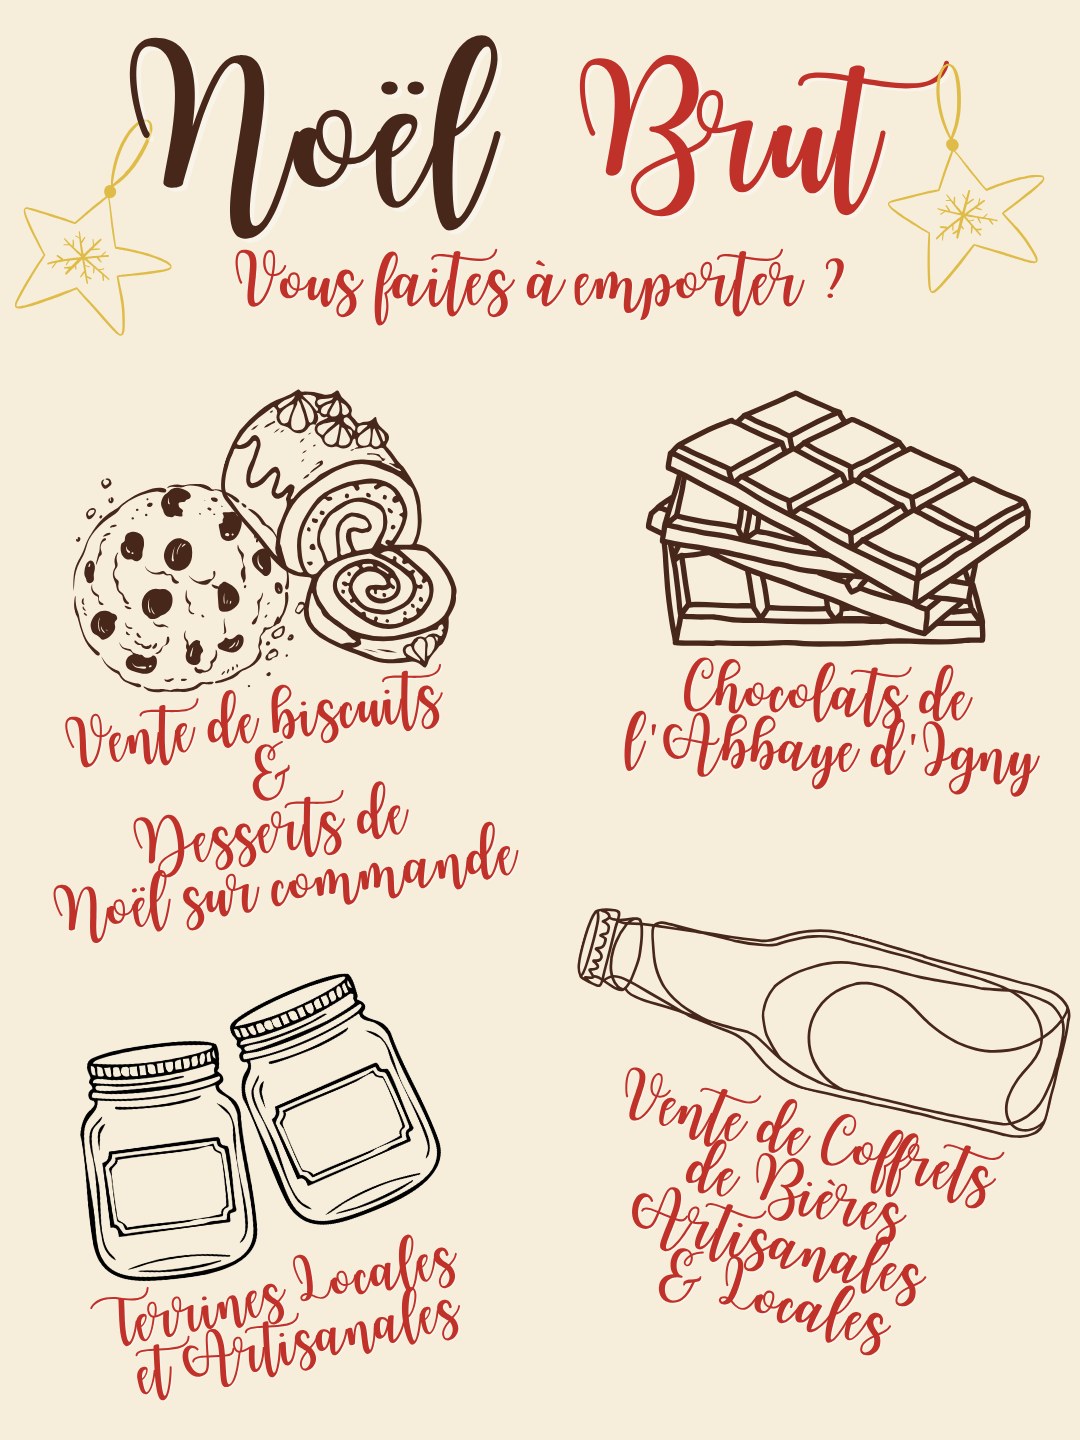 Noël Brut
Vous faites à emporter ?
Vente de biscuits
&
Desserts de
Noël sur commande
Chocolats de
l'Abbaye d'Igny
Terrines Locales
et Artisanales
Vente de Coffrets
de Bières
Artisanales
& Locales